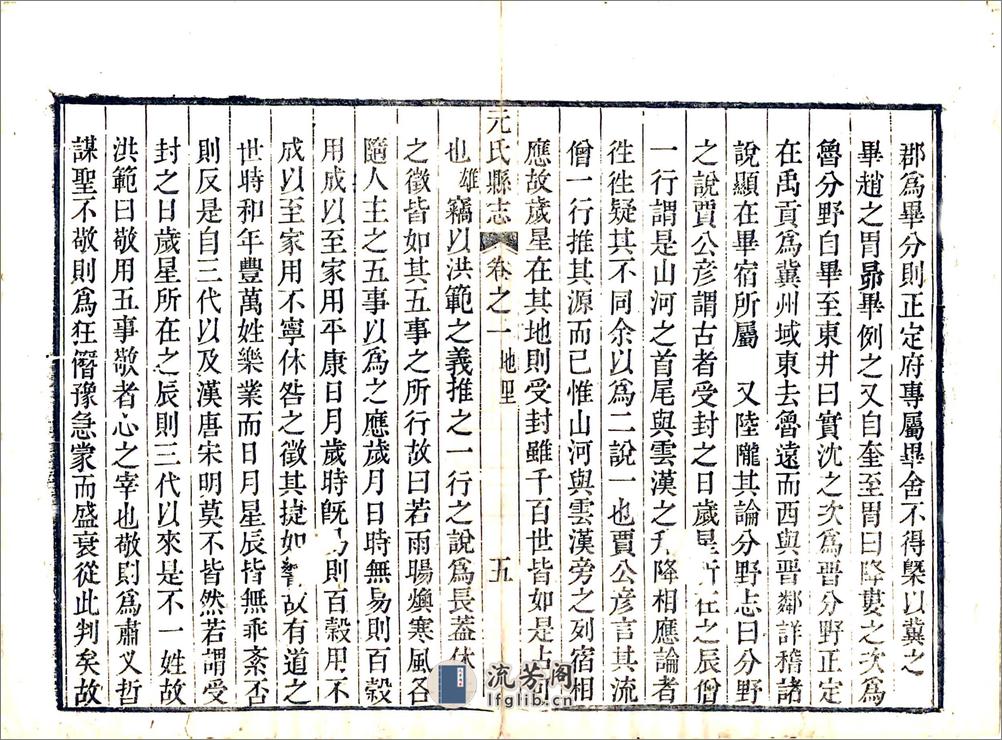 郡爲畢分則正定府專屬畢舍不得槩以冀之
畢趙之胃昴畢例之又自奎至胃曰降婁之次爲
魯分野自畢至東井曰實沈之次爲晉分野正定
在禹貢爲冀州域東去魯遠而西與晉鄰詳稽諸
說顯在畢宿所屬　又陸隴其論分野志曰分野
之說賈公彥謂古者受封之日歲星所在之辰僧
一行謂是山河之首尾與雲漢之升降相應論者
徃徃疑其不同余以爲二說一也賈公彥言其流
僧一行推其源而已惟山河與雲漢旁之列宿相
應故歲星在其地則受封雖千百世皆如是占
元氏縣志　卷之一　地理　五
也　雄　竊以洪範之義推之一行之說爲長蓋休
之徵皆如其五事之所行故曰若雨暘燠寒風各
隨人主之五事以爲之應歲月日時無易則百穀
用成以至家用平康日月歲時旣易則百穀用不
成以至家用不寧休咎之徵其捷如響故有道之
世時和年豐萬姓樂業而日月星辰皆無乖紊否
則反是自三代以及漢唐宋明莫不皆然若謂受
封之日歲星所在之辰則三代以來是不一姓故
洪範曰敬用五事敬者心之宰也敬則爲肅乂哲
謀聖不敬則爲狂僭豫急蒙而盛衰從此判矣故
流芳阁
lfglib.cn